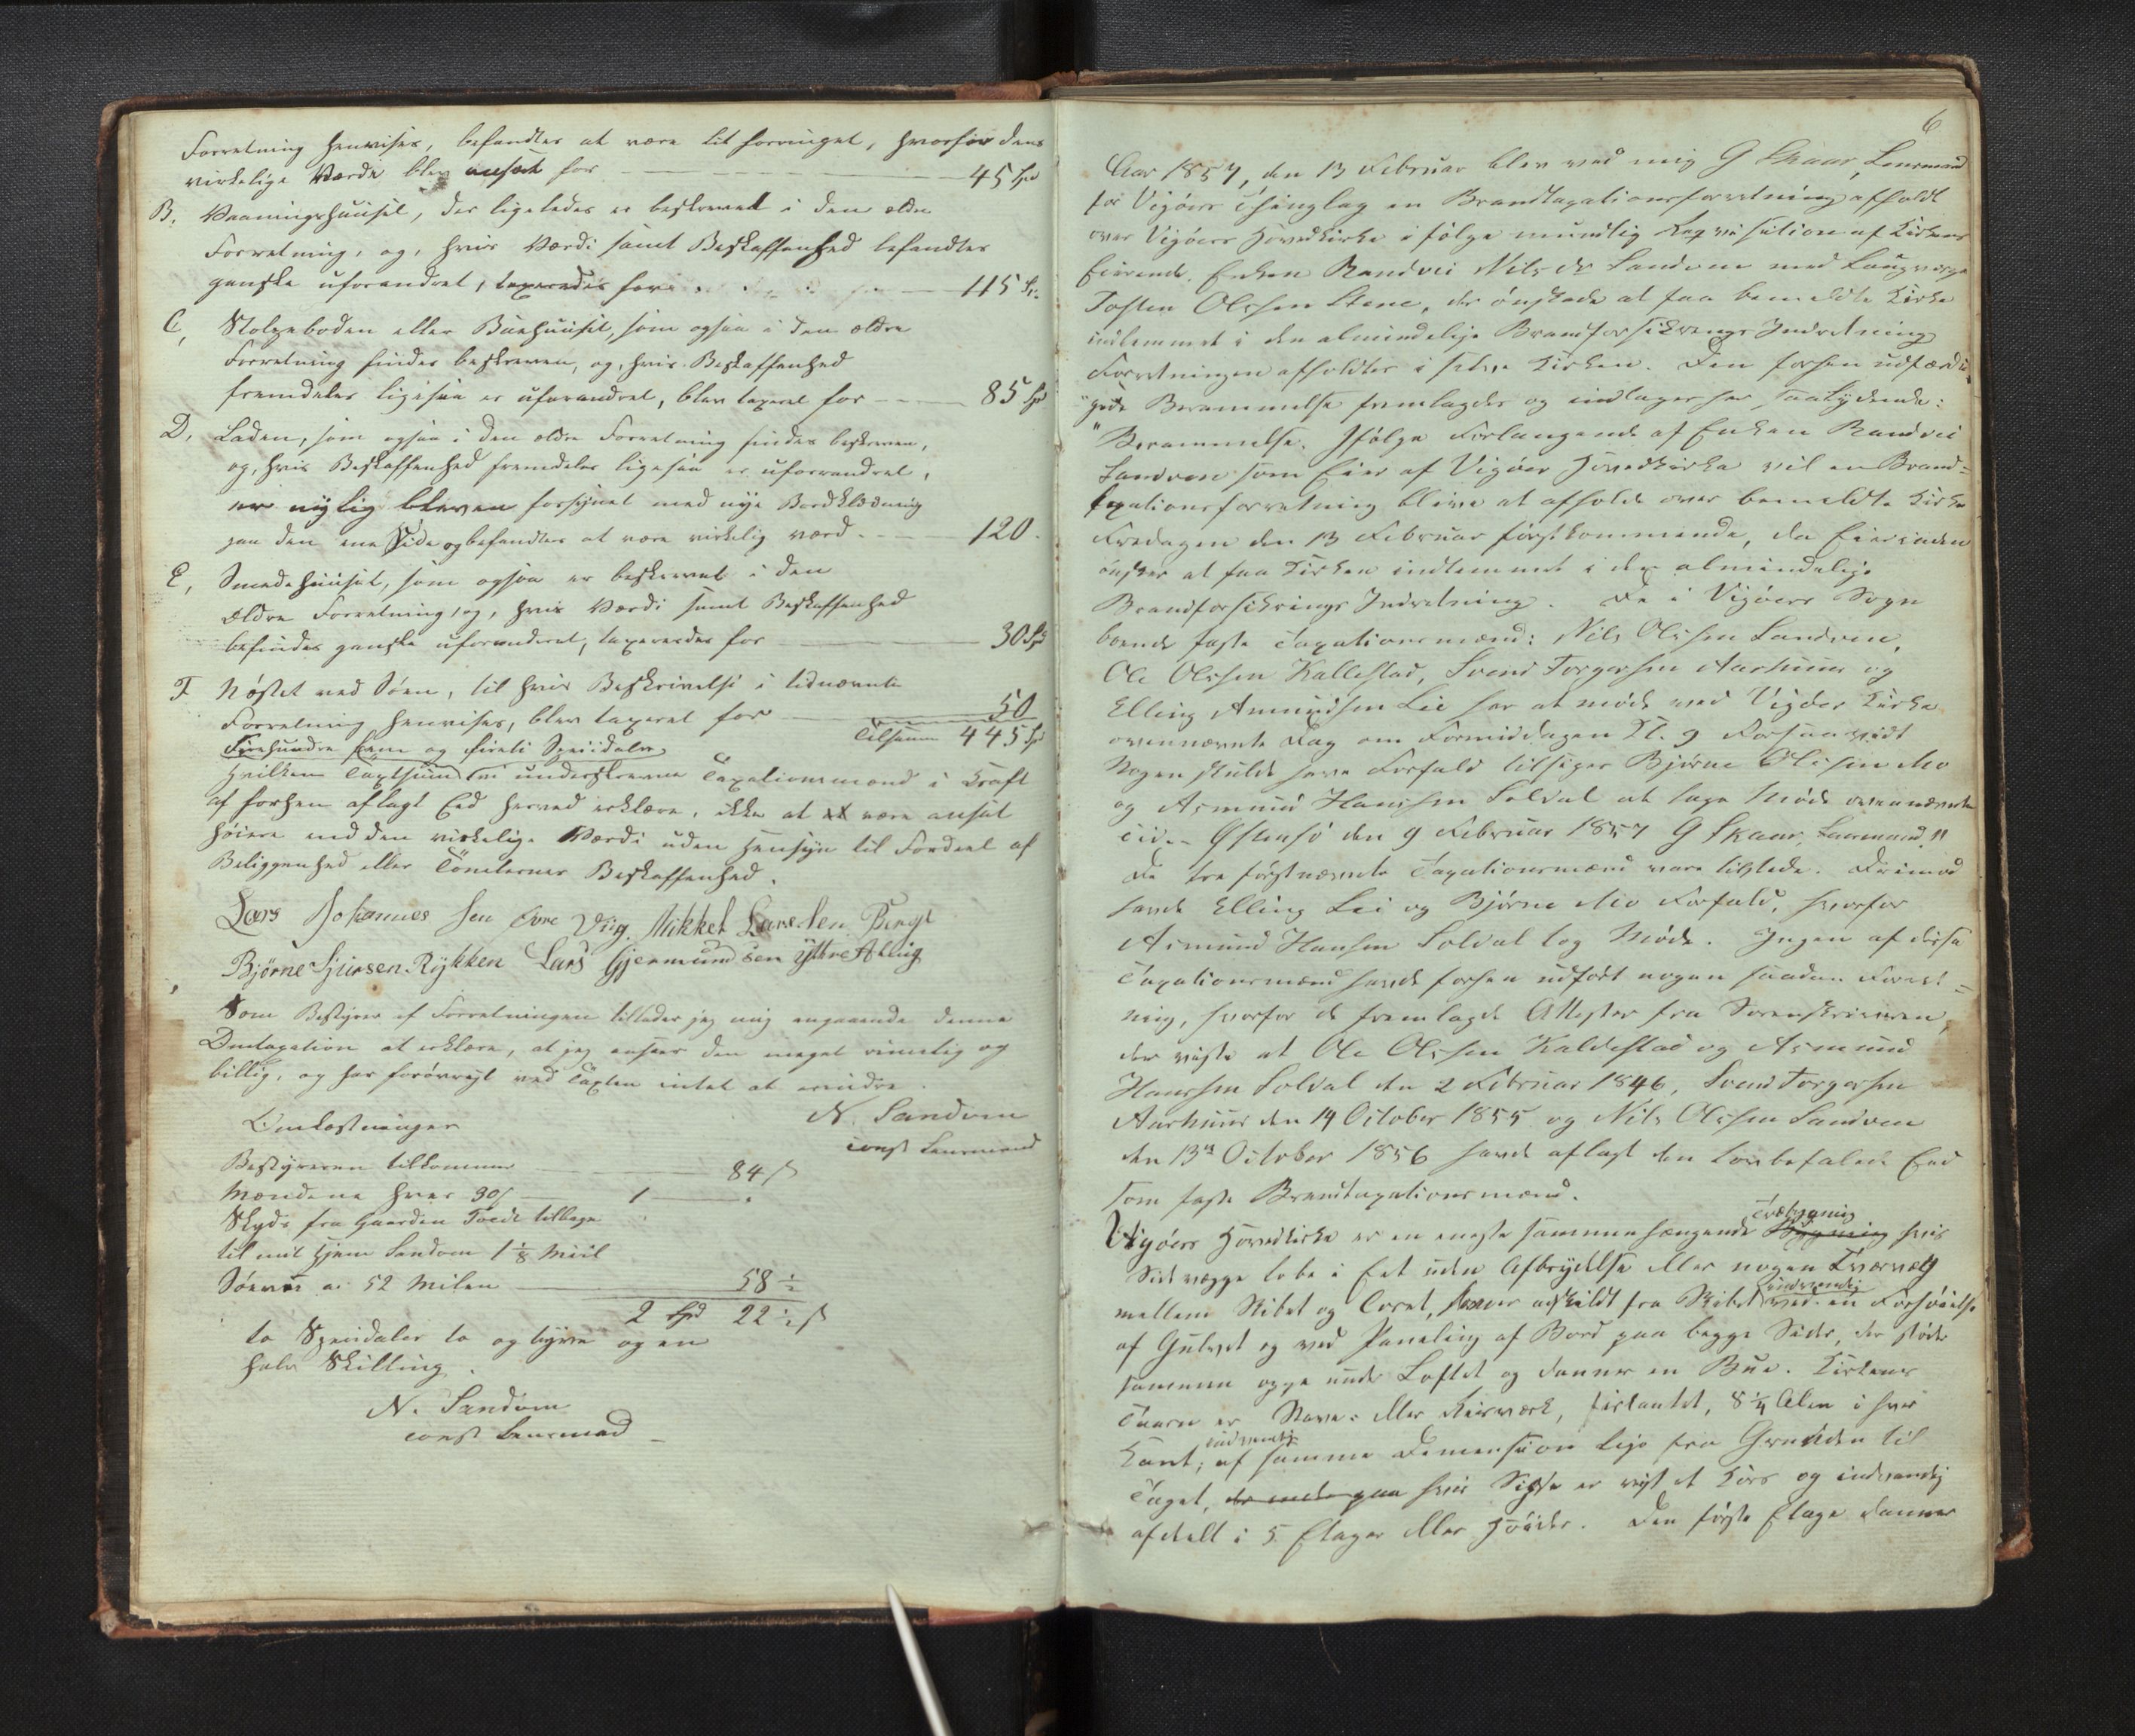 Forretning henvises, befandtes at være lit forringet, hvorfor dens
virkelige Værdi blev ansat for 45 Spd
B. Vaaningshuuset, der ligeledes er beskrevet i den ældre
Forretning, og, hvis Værdi samt Beskaffenhed befandtes
ganske uforandret, taxeredes for 115 Sp.
C, Stolpeboden eller Buehuuset, som ogsaa i den ældre
Forretning findes beskreven, og, hvis Beskaffenhed
fremdeles ligesaa er uforandret, blev taxeret for 85 Spd
D, Laden, som ogsaa i den ældre Forretning findes beskreven,
og, hvis Beskaffenhed fremdeles ligesaa er uforandret,
er nylig bleven forsynet med nye Bordklædning
paa den ene Side og befandtes at være virkelig værd. 120.
E, Smedehuuset, som ogsaa er beskrevet i den
ældre Forretning, og, hvis Værdi samt Beskaffenhed
befindes ganske uforanderet, taxeredes for 30 Sp
F Nøstet ved Søen, til hvis Beskrivelse i tidnævnte
Forretning henvises, blev taxeret for 50
Tilsammen 445 Spd
Firehundre fem og fireti Speciedaler,
hvilken Taxtsum vi underskrevne Taxationsmænd i Kraft
af forhen aflagt Eed herved erklære, ikke at være ansat
høiere end den virkelige Værdi uden Hensyn til Fordeel af
Beliggenhed eller Tomternes Beskaffenhed.
Lars Johannes sen øvre Vig. Mikkel Larsen Berge
Bjørne Sjursen Rykken Lars Gjermundsen ytre Aalvig
Som Bestyrer af Forretningen tillader jeg mig angaaende denne
Omtaxation at erklære, at jeg anseer den meget rimelig og
billig, og har forøvrigt ved Taxten intet at erindre.
N. Sandven
const Lensmand
Omkostninger
Bestyreren tilkommer 84 ß
Mændene hver 30 ß 1 "
Skyds fra Gaarden Toedt tilbage
til mit Hjem Sandven 1 1/8 Miil
Søeveis a 52 Milen 58 1/2
2 Spd 22 1/2 ß
to Speciedaler to og tyve og en
halv Skilling.
N. Sandven
const Lensmand
6
Aar 1857, den 13 Februar blev ved mig G Skaar, Lensmand
for Vigøers Thinglag en Brandtaxationsforretning afholdt
over Vigøers Hovedkirke i følge mundtlig Reqvisition af Kirkens
Eierinde, Enken Randvei Nilsdr Sandven med Laugværge
Tosten Olssen Steene, der ønskede at faa bemeldte Kirke
indlemmet i den almindelige Brandforsikrings Indretning
Forretningen afholdtes i selve Kirken. Den forhen udfærdi-
"gede Berammelse fremlagdes og indtages her, saalydende:
"Berammelse. Ifølge Forlangende af Enken Randvei
Sandven som Eier af Vigøer Hovedkirke vil en Brand=
taxationsforretning blive at afholde over bemeldte Kirke
Fredagen den 13 Februar førstkommende, da Eierinden
ønsker at faa Kirken indlemmet i den almindelige
Brandforsikrings Indretning. De i Vigøers Sogn
boende faste Taxationsmænd: Nils Olssen Sandven,
Ole Olssen Kallestad, Svend Torgersen Aarhuus og
Elling Amundsen Lie har at møde ved Vigøer Kirke
ovennævnte Dag om Formiddagen Kl. 9 Forsaavidt
Nogen skulde have Forfald tilsiges Bjørne Olssen Mo
og Asmund Hanssen Soldal at tage Møde ovennævnte
Tid. Østensø den 9 Februar 1857 G Skaar, Lensmand."
De tre førstnævnte Taxationsmænd vare tilstede. Derimod
havde Elling Lei og Bjørne Mo Forfald, hvorfor
Asmund Hansen Soldal tog Møde. Ingen af disse
Taxationsmænd havde forhen udført nogen saadan Forret=
ning, hvorfor de fremlagde Attester fra Sorenskriveren,
der viste at Ole Olssen Kaldestad og Asmund
Hanssen Soldal den 2 Februar 1846, Svend Torgersen
Aarhuus den 14 October 1855 og Nils Olssen Sandven
den 13de October 1856 havde aflagt den lovbefalede Eed
som faste Brandtaxationsmænd.
Træbygning
Vigøers Hovedkirke er en eneste sammenhængende Bygning hvis
Sidevægge løbe i Eet uden Afbrydelse eller nogen Tværvæg
indvendig
mellem Skibet og Coret, som er adskildt fra Skibet ved en Forhøielse
af Gulvet og ved Paneling af Bord paa begge Sider, der støde
sammen oppe under Loftet og danner en Bue. Kirkens
Taarn er Stave- eller Reisværk, firkantet, 8 1/4 Alen i hver
indvendig
Kant, af samme Demension lige fra Grunden til
Taget, hvis Spidse er et Kors og indvendig
afdeelt i 5 Etager eller Høider. Den første Etage danner